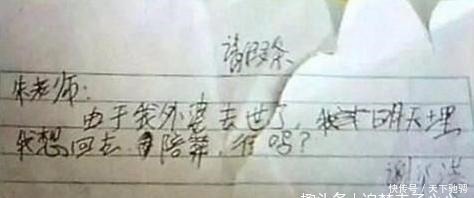 请假条
朱老师:
由于我外婆去世了,我 明天埋
我想回去 陪葬,行吗?
谢
快传号/天下驰骋